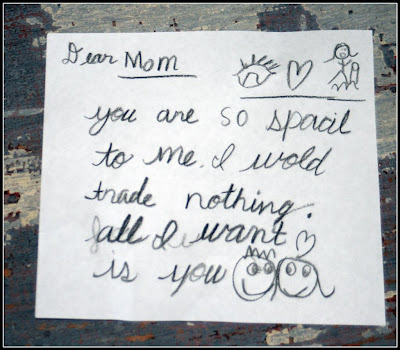 Dear Mom
you are so spacil
to me. I wold
trade nothing.
all I want
is you